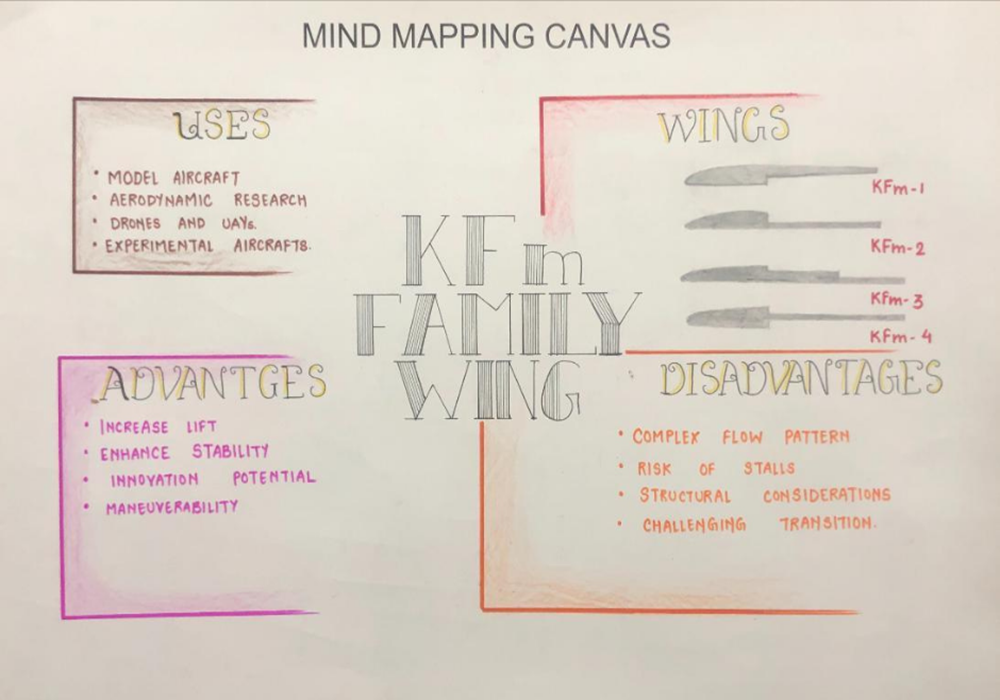 MIND MAPPING CANVAS
USES
• MODEL AIRCRAFT
• AERODYNAMIC RESEARCH
• DRONES AND UAVs.
• EXPERIMENTAL AIRCRAFTS.
WINGS
KFm-1
KFm-2
KFm-3
KFm-4
KFm
FAMILY
WING
ADVANTGES
• INCREASE LIFT
• ENHANCE STABILITY
• INNOVATION POTENTIAL
• MANEUVERABILITY
DISADVANTAGES
• COMPLEX FLOW PATTERN
• RISK OF STALLS
• STRUCTURAL CONSIDERATIONS
• CHALLENGING TRANSITION.